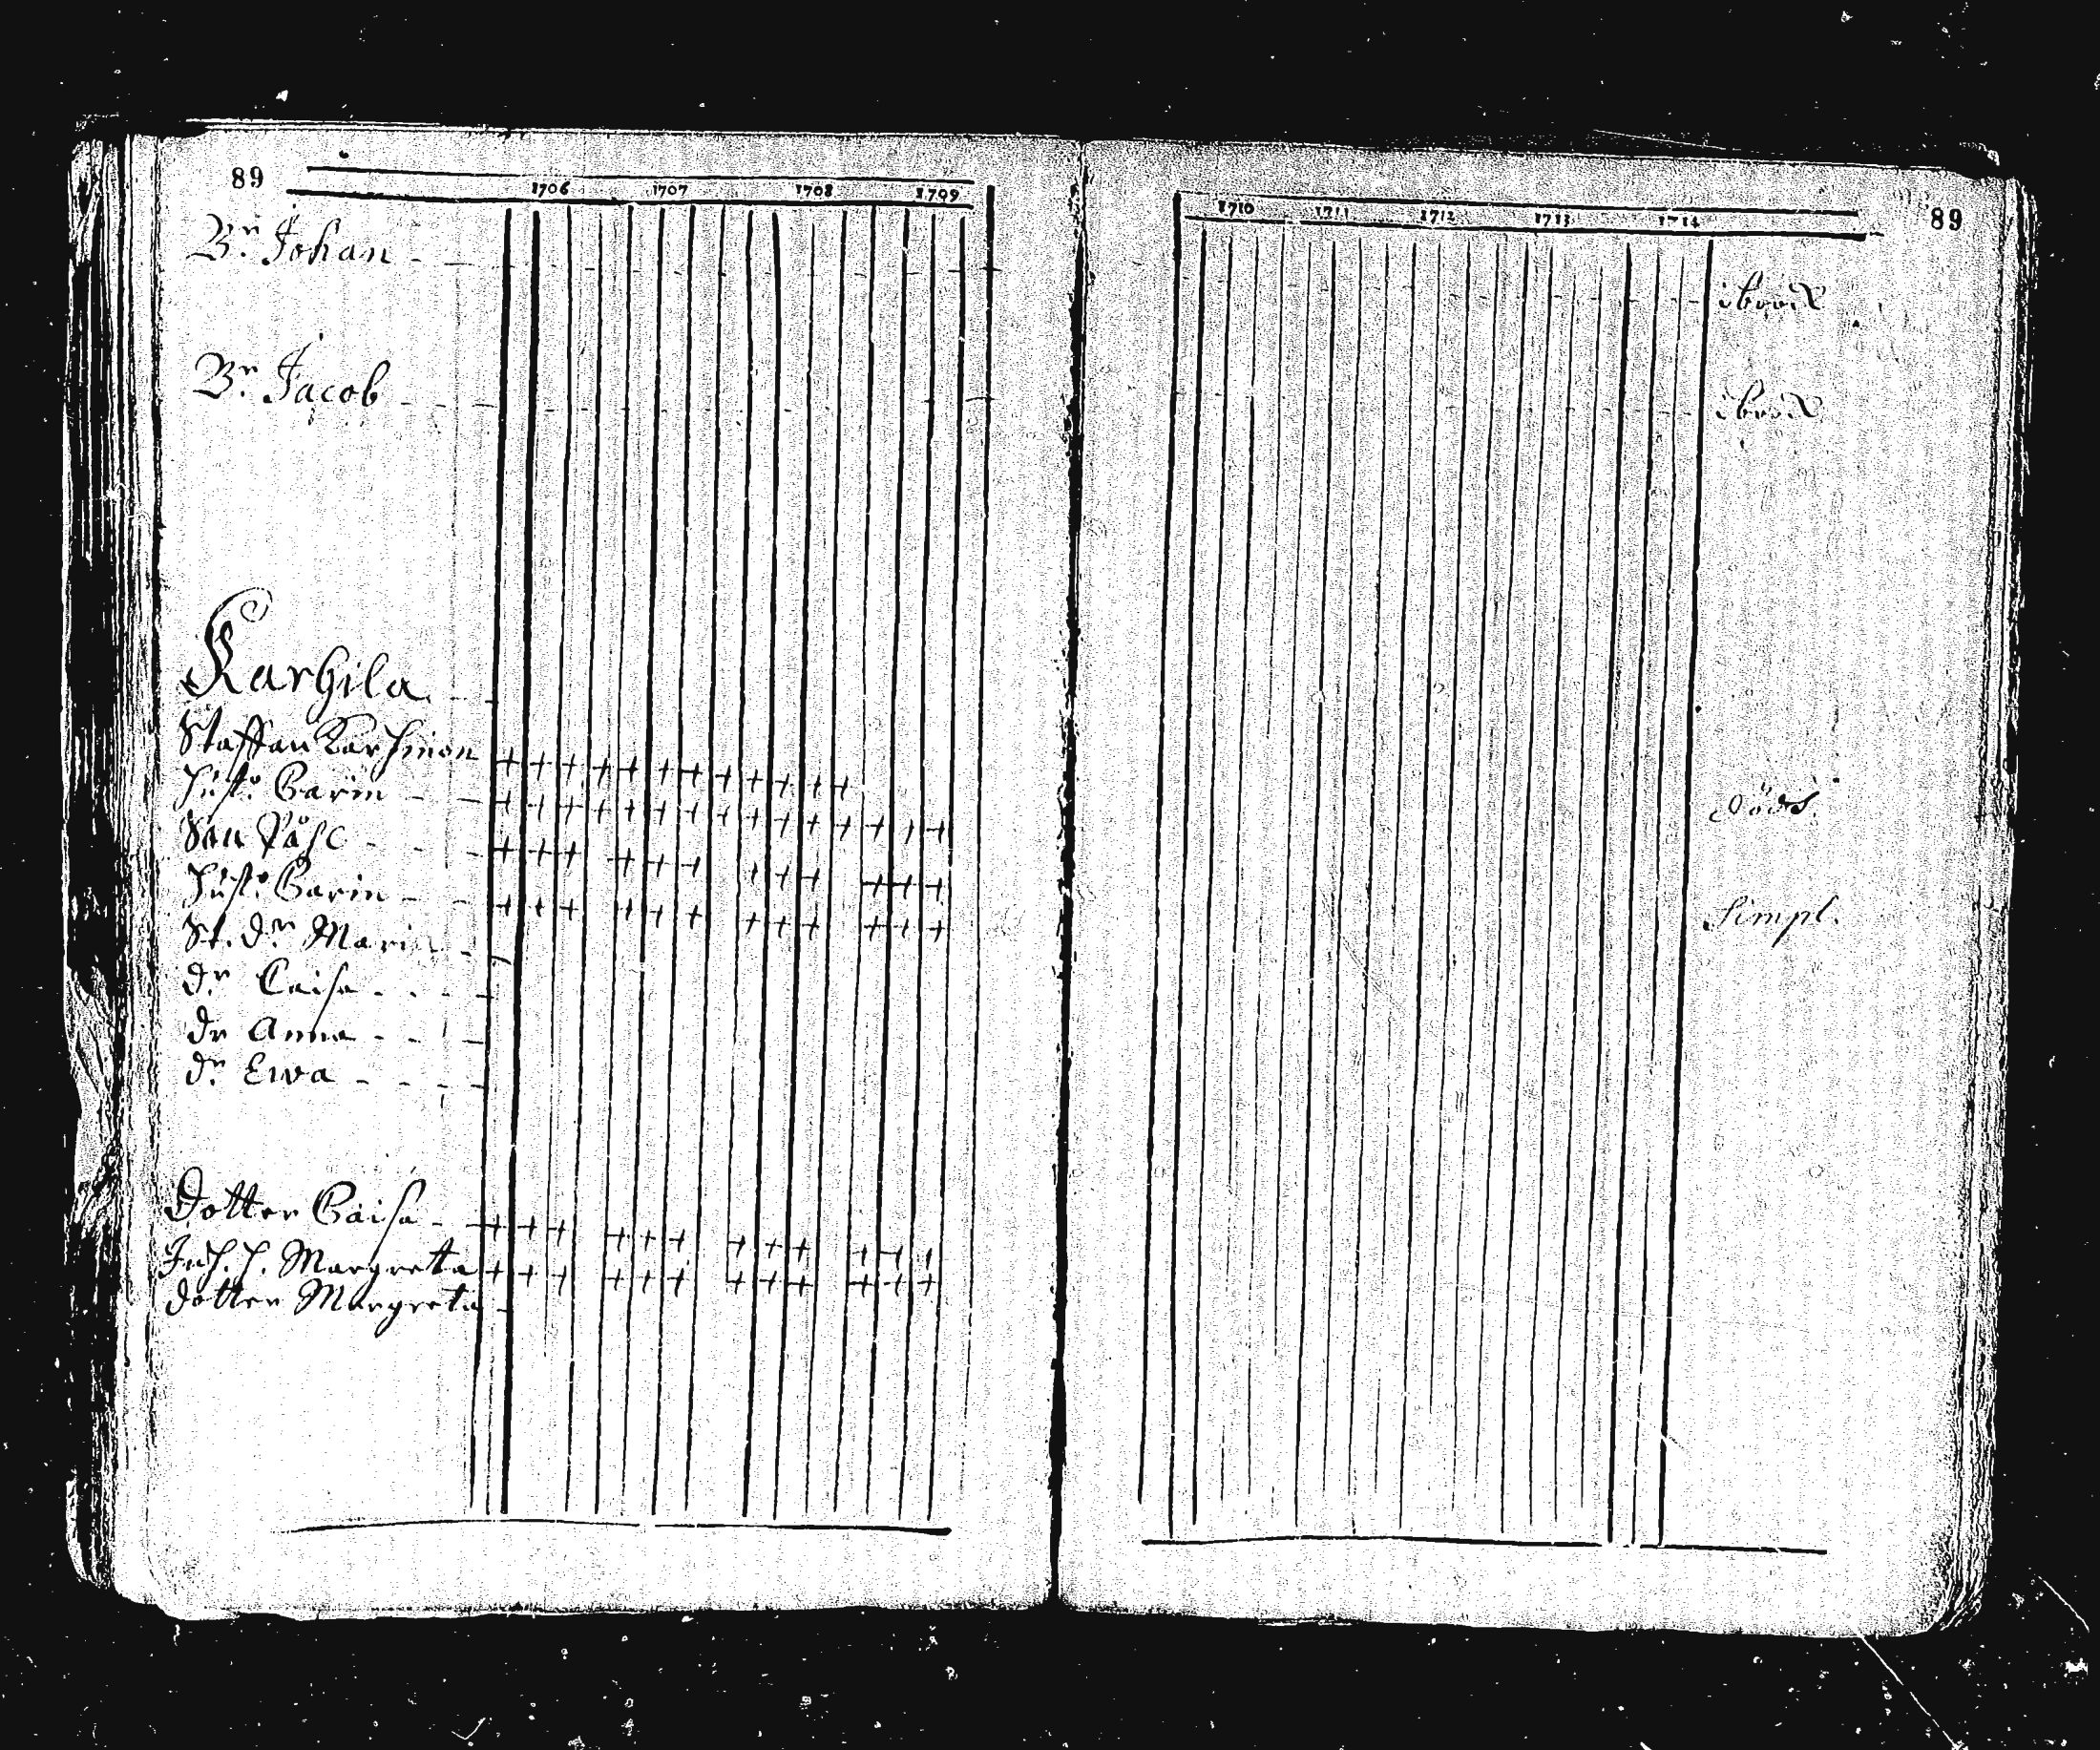 89
1706 1707 1708 1709
Br. Johan
Br. Jacob
Karhila
Staffan Karhinen
Hust. Carin
Son Påhl
Hust. Carin
St. dr Mari
dr Caisa
dr Anna
dr Ewa
Dotter Caisa
Inh. h. Margreta
dotter Margreta
1710 1711 1712 1713 1714
89
död.
simpl.